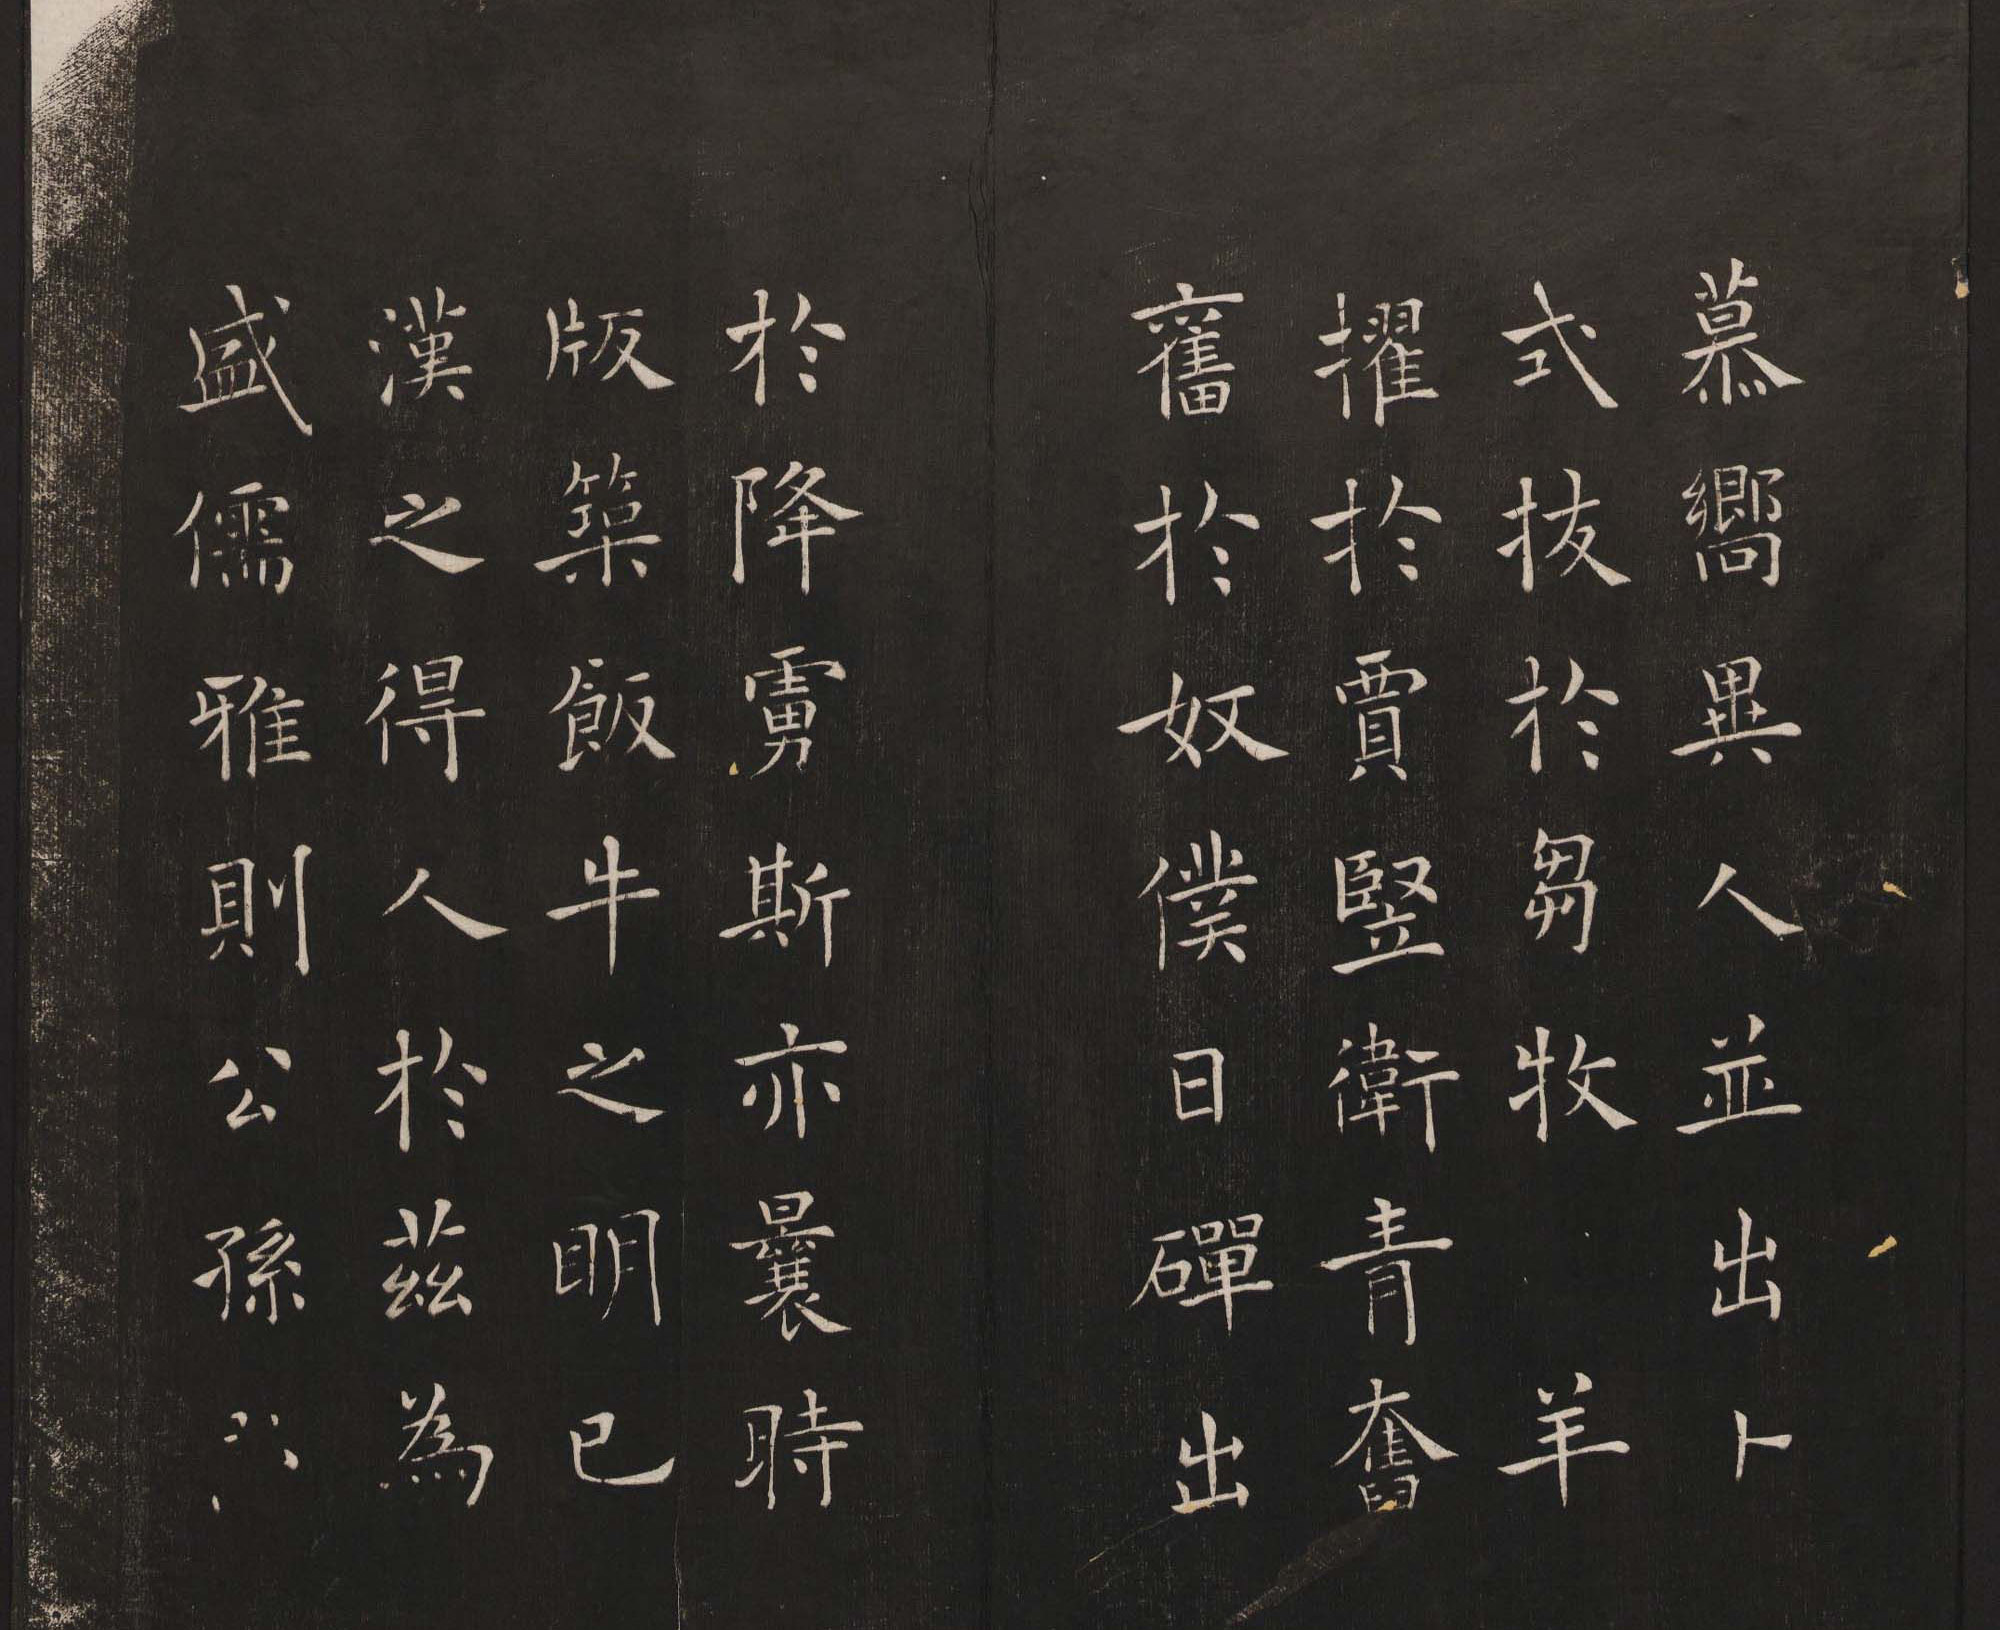 慕嚮異人並出卜
式拔於芻牧羊
擢於賈豎衛青奮
舊於奴僕日磾出
於降虜斯亦曩時
版築飯牛之明已
漢之得人於茲為
盛儒雅則公孫